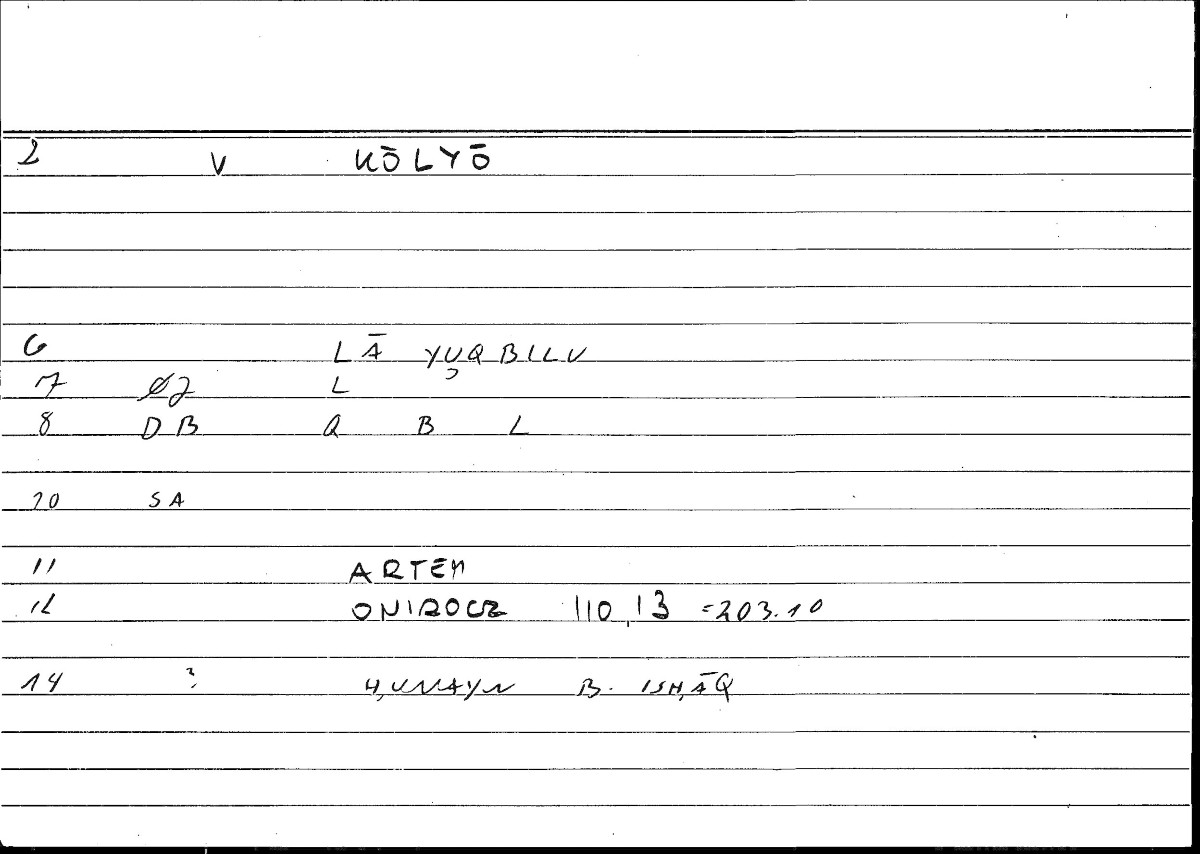 2 V KŌLYŌ
6 LĀ YUQBILU
7 ØJ L
8 DB Q B L
10 SA
11 ARTEM
12 ONIROCR 110,13 =203.10
14 ? H,UNAYN B. ISH,ĀQ